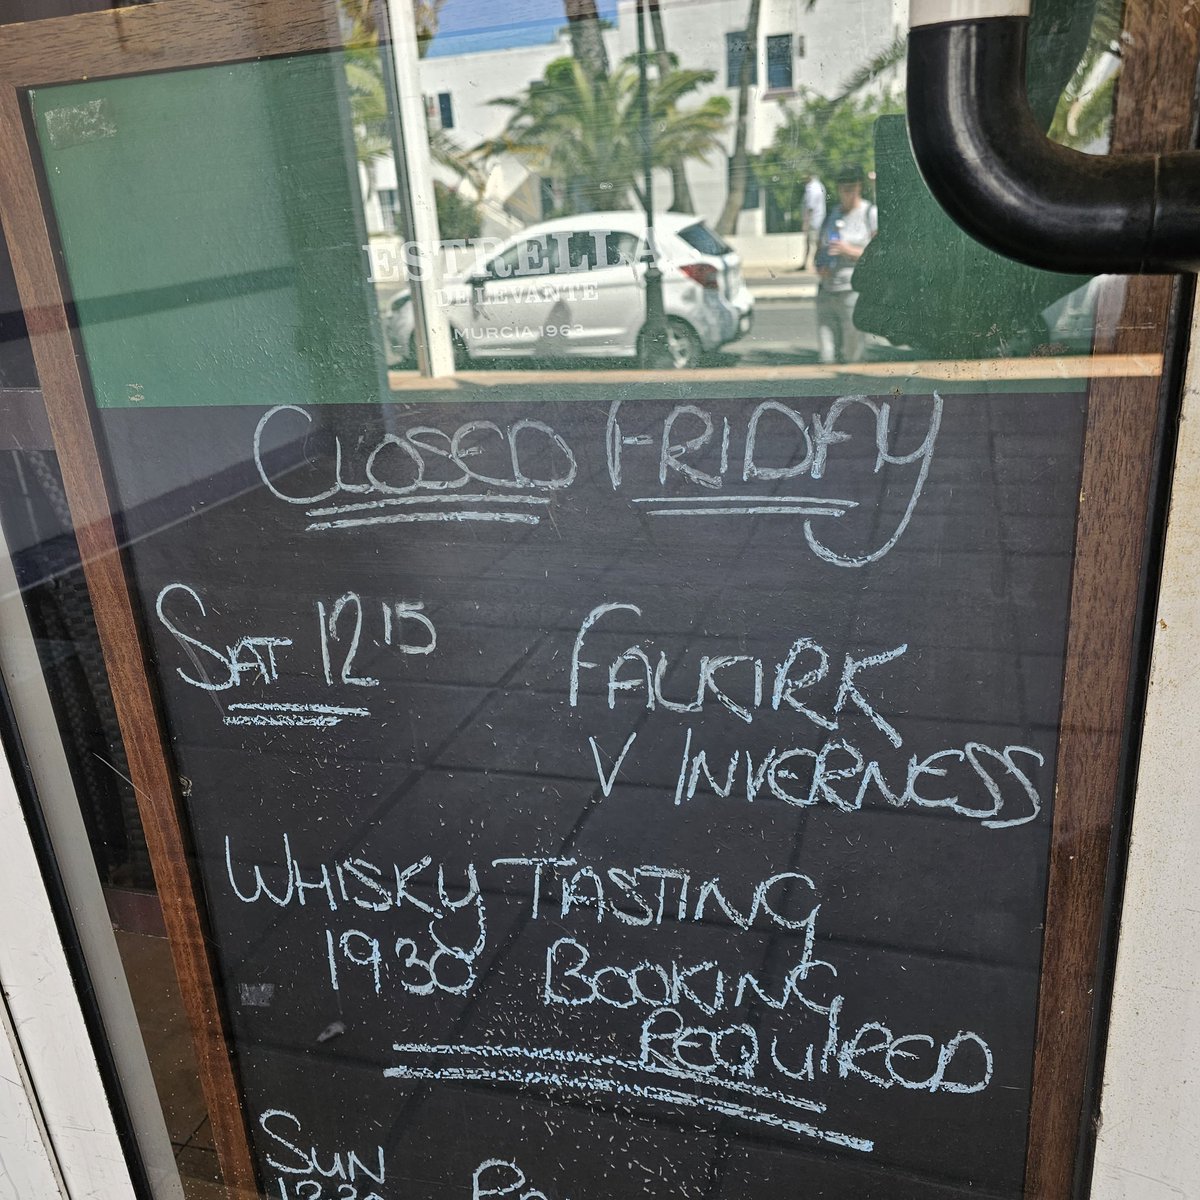 ESTRELLA
DE LEVANTE
MURCIA 1963
CLOSED FRIDAY
SAT 12 15 FALKIRK
V INVERNESS
WHISKY TASTING
1930 BOOKING
REQUIRED
SUN